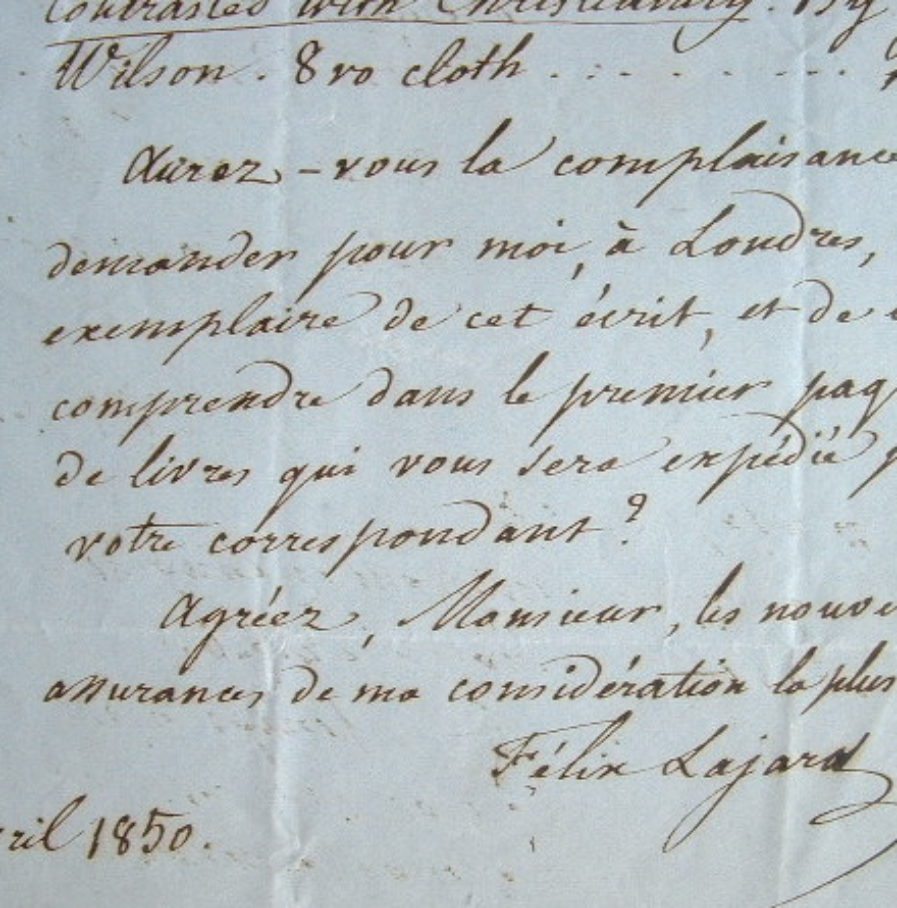 Contrasted with Christianity. By
Wilson. 8vo cloth . . . . . . . . .
Aurez-vous la complaisance
demander pour moi, à Londres,
exemplaire de cet écrit, et de
comprendre dans le premier paq
de livres qui vous sera expédié
votre correspondant?
Agréez, Monsieur, les nouve
assurances de ma considération la plus
Félix Lajard
ril 1850.